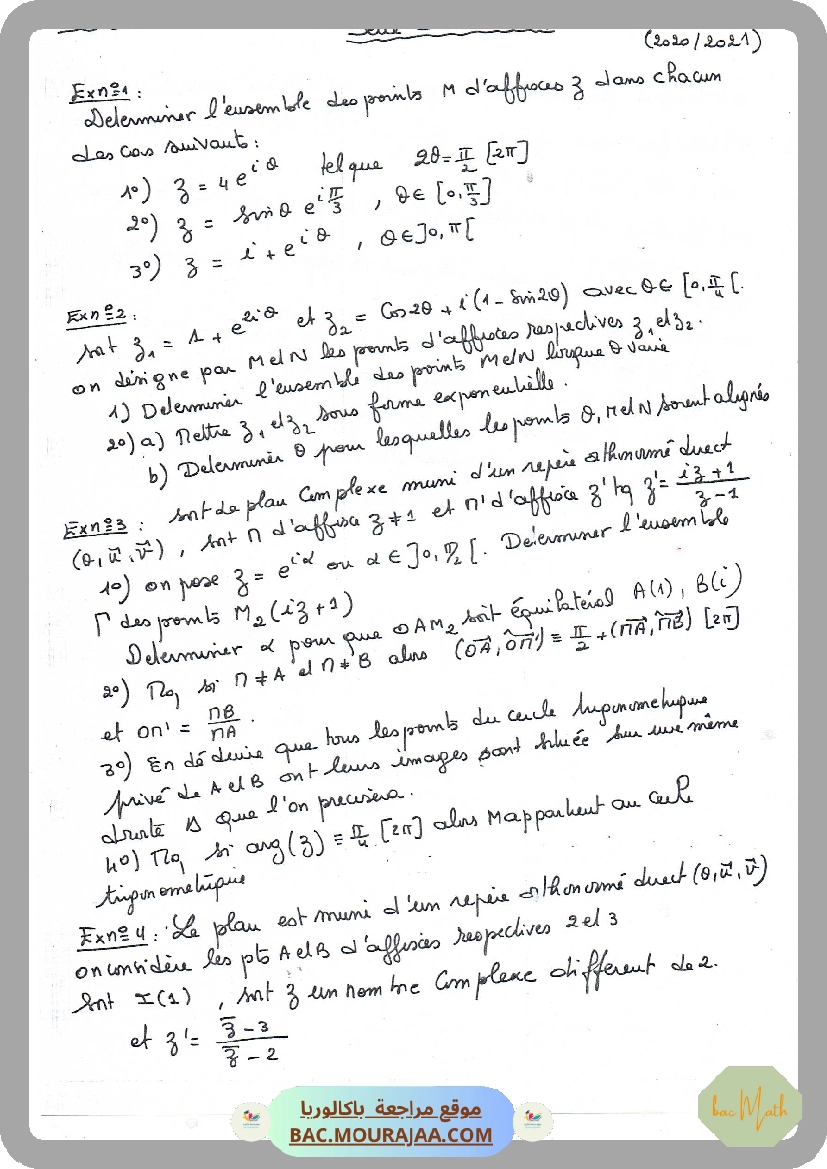 (2020/2021)
Exn°1 :
Determiner l'ensemble des points M d'affixes z dans chacun
des cas suivants :
1°) z = 4 e^{iθ} tel que 2θ = π/2 [2π]
2°) z = sin θ e^{iπ/3} , θ ∈ [0, π/3]
3°) z = i + e^{iθ} , θ ∈ ]0, π[
Exn°2 :
soit z₁ = 1 + e^{2iθ} et z₂ = Cos 2θ + i (1 - sin 2θ) avec θ ∈ [0, π/4 [.
on désigne par M et N les points d'affixes respectives z₁ et z₂.
1) Determiner l'ensemble des points M et N lorsque θ varie
2°) a) Mettre z₁ et z₂ sous forme exponentielle.
b) Determiner θ pour lesquelles les points O, M et N soient alignés
Exn°3 : soit le plan Complexe muni d'un repère orthonormé direct
(O, u⃗, v⃗) , soit M d'affixe z ≠ 1 et M' d'affixe z' tq z' = (iz + 1)/(z - 1)
1°) on pose z = e^{iα} ou α ∈ ]0, π/2 [. Déterminer l'ensemble
Γ des points M₂ (iz + 1)
Determiner α pour que OAM₂ soit équilatéral A(1), B(i)
2°) Mq si M ≠ A et M ≠ B alors (OA⃗, OM'⃗) ≡ π/2 + (MA⃗, MB⃗) [2π]
et OM' = MB/MA .
3°) En déduire que tous les points du cercle trigonometrique
privé de A et B ont leurs images sont située sur une même
droite Δ que l'on precisera.
4°) Mq si arg(z) ≡ π/4 [2π] alors M appartient au cercle
trigonometrique
Exn°4 : Le plan est muni d'un repère orthonormé direct (O, u⃗, v⃗)
on considère les pts A et B d'affixes respectives 2 et 3
Soit I(1) , soit z un nombre Complexe different de 2.
et z' = (z̄ - 3)/(z̄ - 2)
موقع مراجعة باكالوريا
BAC.MOURAJAA.COM
bac Math